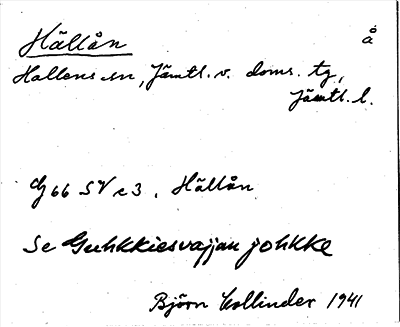 Hällån
å
Hallens sn, Jämtl. v. doms. tg,
Jämtl. l.
G 66 SV c 3. Hällån
Se Guhkkiesvajjan johkke
Björn Collinder 1941